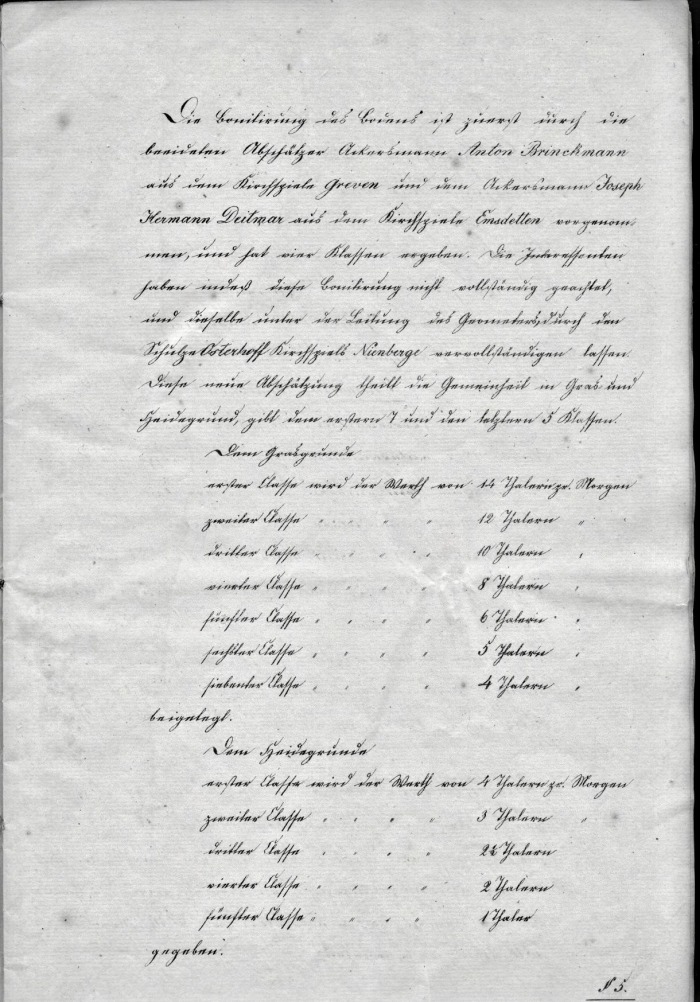 Die Bonitirung des Bodens ist zuerst durch die
beeideten Abschätzer Ackersmann Anton Brinckmann
aus dem Kirchspiele Greven und dem Ackersmann Joseph
Hermann Deitmar aus dem Kirchspiele Emsdetten vorgenom-
men, und hat vier Klassen ergeben. Die Interessenten
haben indeß diese Bonitirung nicht vollständig geachtet,
und dieselbe unter der Leitung des Geometers, durch den
Schulze Osterhoff Kirchspiels Nienberge vervollständigen lassen.
Diese neue Abschätzung theilt die Gemeinheit in Gras und
Heidegrund, gibt dem erstern 7 und den letztern 5 Klassen.
Dem Grasgrunde
erster Classe wird der Werth von 14 Thalern pr. Morgen
zweiter Classe " " " " 12 Thalern "
dritter Classe " " " " 10 Thalern "
vierter Classe " " " " 8 Thalern "
fünfter Classe " " " " 6 Thalern "
sechster Classe " " " " 5 Thalern "
siebenter Classe " " " " 4 Thalern "
beigelegt.
Dem Heidegrunde
erster Classe wird der Werth von 4 Thalern pr. Morgen
zweiter Classe " " " " 3 Thalern "
dritter Classe " " " " Thalern
vierter Classe " " " " 2 Thalern
fünfter Classe " " " " 1 Thaler
gegeben.
§ 5.